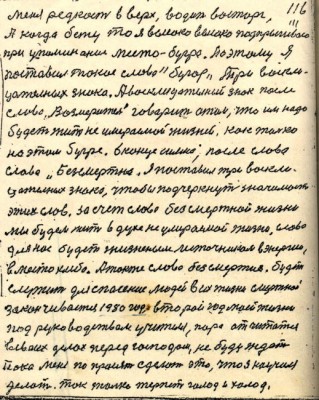 116
меня редкость в верх, водит восторг,
А когда бегу то я высоко высоко подпрыгиваю
при упоминании место-бугра. Поэтому я
поставил такое слово "бугор" три воскли-
цательных знака. А восклицательный знак после
слово, "Возмеритя" говорит о том, что им надо
будет жить не умираемой жизни, как только
на этом бугре. В конце письма, после слова
слова "Безсмертна. я поставил три воскли-
цательных знака, чтобы подчеркнуть значимость
этих слов, за счет слово безсмертной жизни
мы будем жить в духе не умираемой жизно, слово
для нас будет жизненым источником энергии,
вместо хлеба. А также слово безсмертия. будет
служить для спасение людей вся жизнь смертной
заканчивается 1980 год второй год моей жизни
под руководством учителя, пора отчитатся
в своих делах перед господом, не буду ждать
пока меня по просят сделать это, что я научился
делать. Так только терпеть голод и холод.